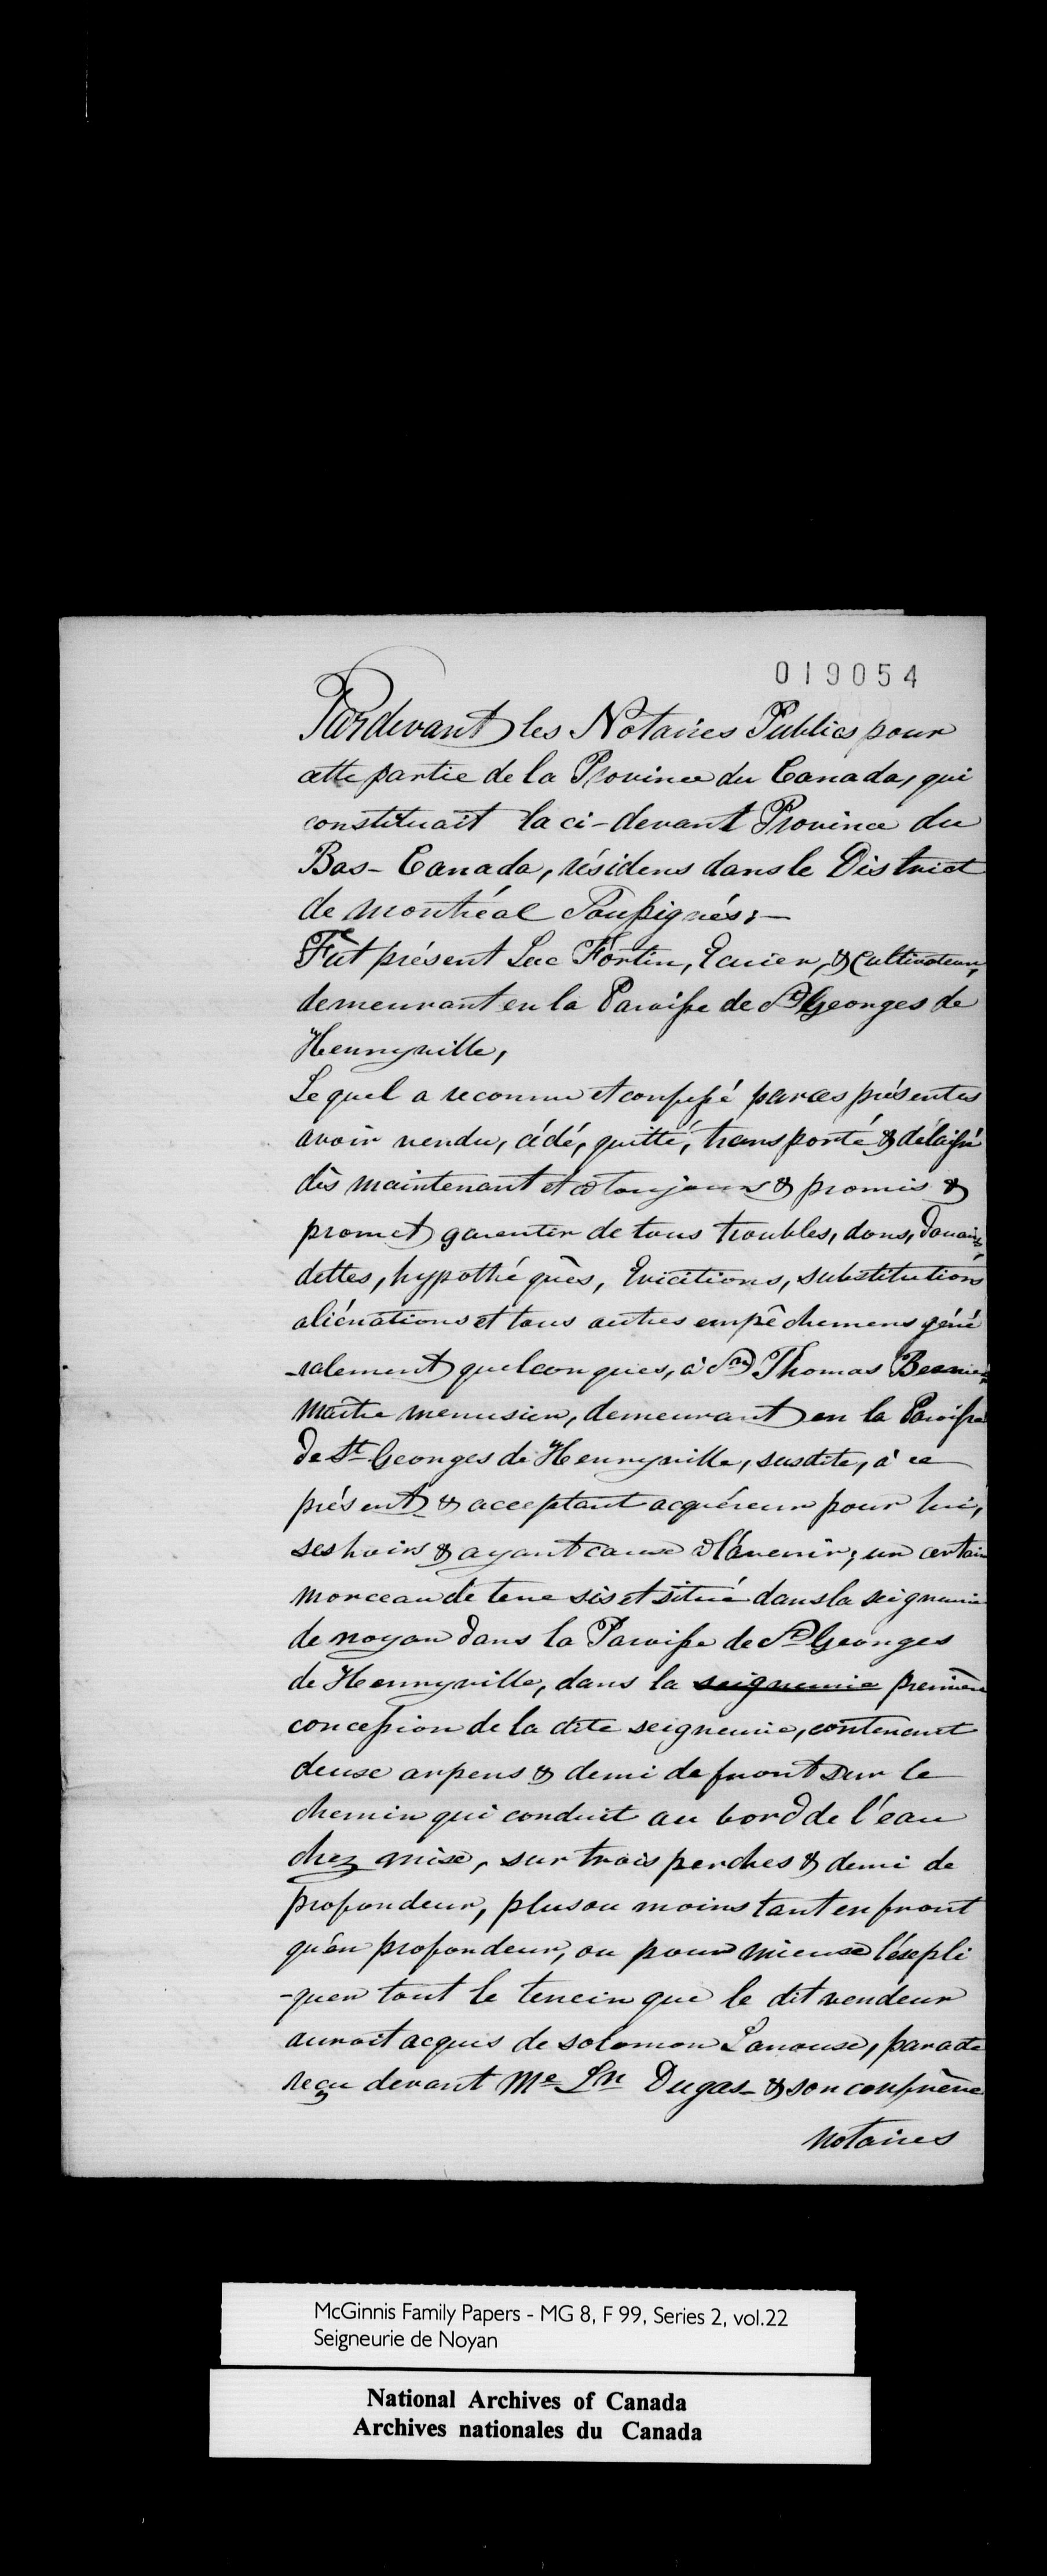 019054
Pardevant les Notaires Publics pour
cette partie de la Province du Canada, qui
constituait la ci-devant Province du
Bas-Canada, résidens dans le District
de montréal Soussignés;—
Fût présent Luc Fortin, Ecuier, & Cultivateur,
demeurant en la Paroisse de St Georges de
Henryville,
Lequel a reconnu et confessé par ces présentes
avoir vendu, cédé, quitté, transporté & délaissé
dès maintenant et à toujours & promis &
promet garentir de tous troubles, dons, douaires,
dettes, hypothéques, Evicitions, substitutions
aliénations et tous autres empêchemens géné
-ralement quelconques, à Sr Thomas
Maître menusier, demeurant en la Paroisse
de St Georges de Henryville, susdite, à ce
présent & acceptant acquéreur pour lui,
ses hoirs & ayant cause à l'avenir; un certain
morceau de terre sis et situé dans la seigneurie
de noyan dans la Paroisse de St Georges
de Henryville, dans la seigneurie première
concession de la dite seigneurie, contenant
deux arpens & demi de front sur le
chemin qui conduit au bord de l'eau
chez mise, sur trois perches & demi de
profondeur, plus ou moins tant en front
qu'en profondeur, ou pour mieux l'éxpli
-quer tout le terrein que le dit vendeur
auroit acquis de solomon Lanoux, par acte
reçu devant Me Ln Dugas & son confrère
Notaires
McGinnis Family Papers - MG 8, F 99, Series 2, vol.22
Seigneurie de Noyan
National Archives of Canada
Archives nationales du Canada